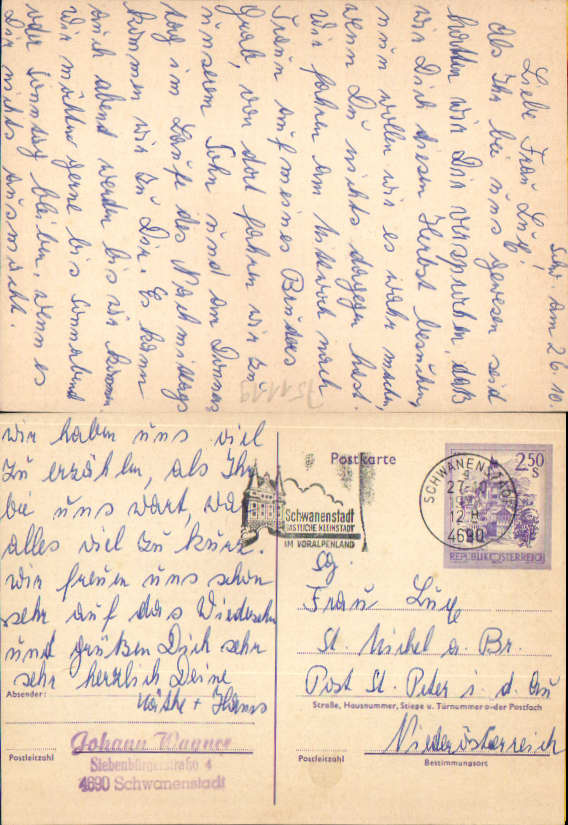 Schw. am 26.10.
Liebe Frau Luge!
Als Ihr bei uns gewesen seid
hatten wir Dir versprochen, daß
wir Dich diesen Herbst besuchen
nun wollen wir es wahr machen,
wenn Du nichts dagegen hast.
Wir fahren am Mittwoch nach
Traun auf meines Bruders
Grab, von dort fahren wir zu
unserem Sohn und am Donners
tag im Laufe des Nachmittags
kommen wir zu Dir. Es kann
auch abend werden bis wir kommen.
Wir möchten gerne bis Sonnabend
oder Sonntag bleiben, wenn es
Dir nichts ausmacht.
751119
wir haben uns viel
zu erzählen, als Ihr
bei uns wart, war
alles viel zu kurz.
Wir freuen uns schon
sehr auf das Wiedersehn
und grüßen Dich sehr
sehr herzlich Deine
Käthe + Hans
Absender:
Johann Wagner
Siebenbürgerstraße 4
4690 Schwanenstadt
Postleitzahl
Postkarte
2.50
S
REPUBLIK ÖSTERREICH
SCHWANENSTADT
27.
12.8
4690
Schwanenstadt
GASTLICHE KLEINSTADT
IM VORALPENLAND
Frau Luge
St. Michel a. Br.
Post St. Peter i. d. Au
Straße, Hausnummer, Stiege u. Türnummer oder Postfach
Niederösterreich
Postleitzahl
Bestimmungsort